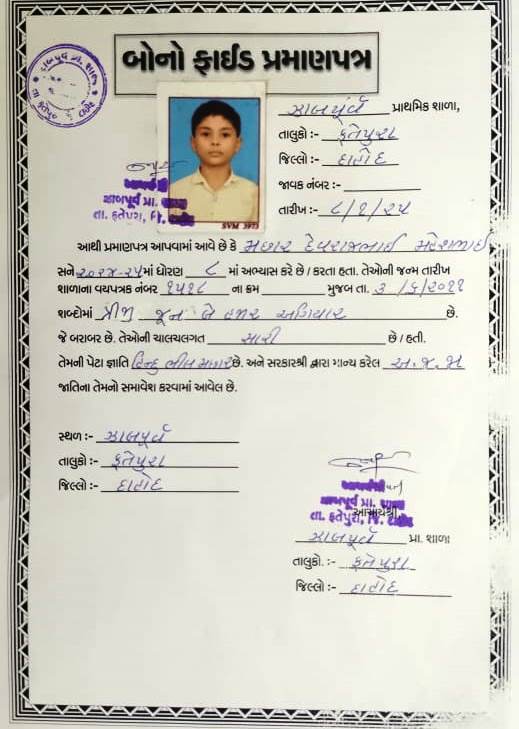 બોનો ફાઈડ પ્રમાણપત્ર
ઝાબપૂર્વ પ્રાથમિક શાળા,
તાલુકો :- ફતેપુરા
જિલ્લો :- દાહોદ
જાવક નંબર :-
તારીખ :- ૮/૧/૨૫
SVM 3973
આચાર્યશ્રી
ઝાબપૂર્વ પ્રા. શાળા
તા. ફતેપુરા, જિ. દાહોદ
આથી પ્રમાણપત્ર આપવામાં આવે છે કે મછાર દેવરાજભાઈ મહેશભાઈ
સને ૨૦૨૪-૨૫માં ધોરણ ૮ માં અભ્યાસ કરે છે / કરતા હતા. તેઓની જન્મ તારીખ
શાળાના વયપત્રક નંબર ૧૫૧૮ ના ક્રમ મુજબ તા. ૩/૬/૨૦૧૧
શબ્દોમાં ત્રીજી જૂન બે હજાર અગિયાર છે.
જે બરાબર છે. તેઓની ચાલચલગત સારી છે / હતી.
તેમની પેટા જ્ઞાતિ હિન્દુ ભીલ મછાર છે. અને સરકારશ્રી દ્વારા માન્ય કરેલ અ.જ.જા
જાતિના તેમનો સમાવેશ કરવામાં આવેલ છે.
સ્થળ :- ઝાબપૂર્વ
તાલુકો :- ફતેપુરા
જિલ્લો :- દાહોદ
આચાર્યશ્રી
ઝાબપૂર્વ પ્રા. શાળા
તા. ફતેપુરા, જિ. દાહોદ
આચાર્યશ્રી,
ઝાબપૂર્વ પ્રા. શાળા
તાલુકો. :- ફતેપુરા
જિલ્લો :- દાહોદ